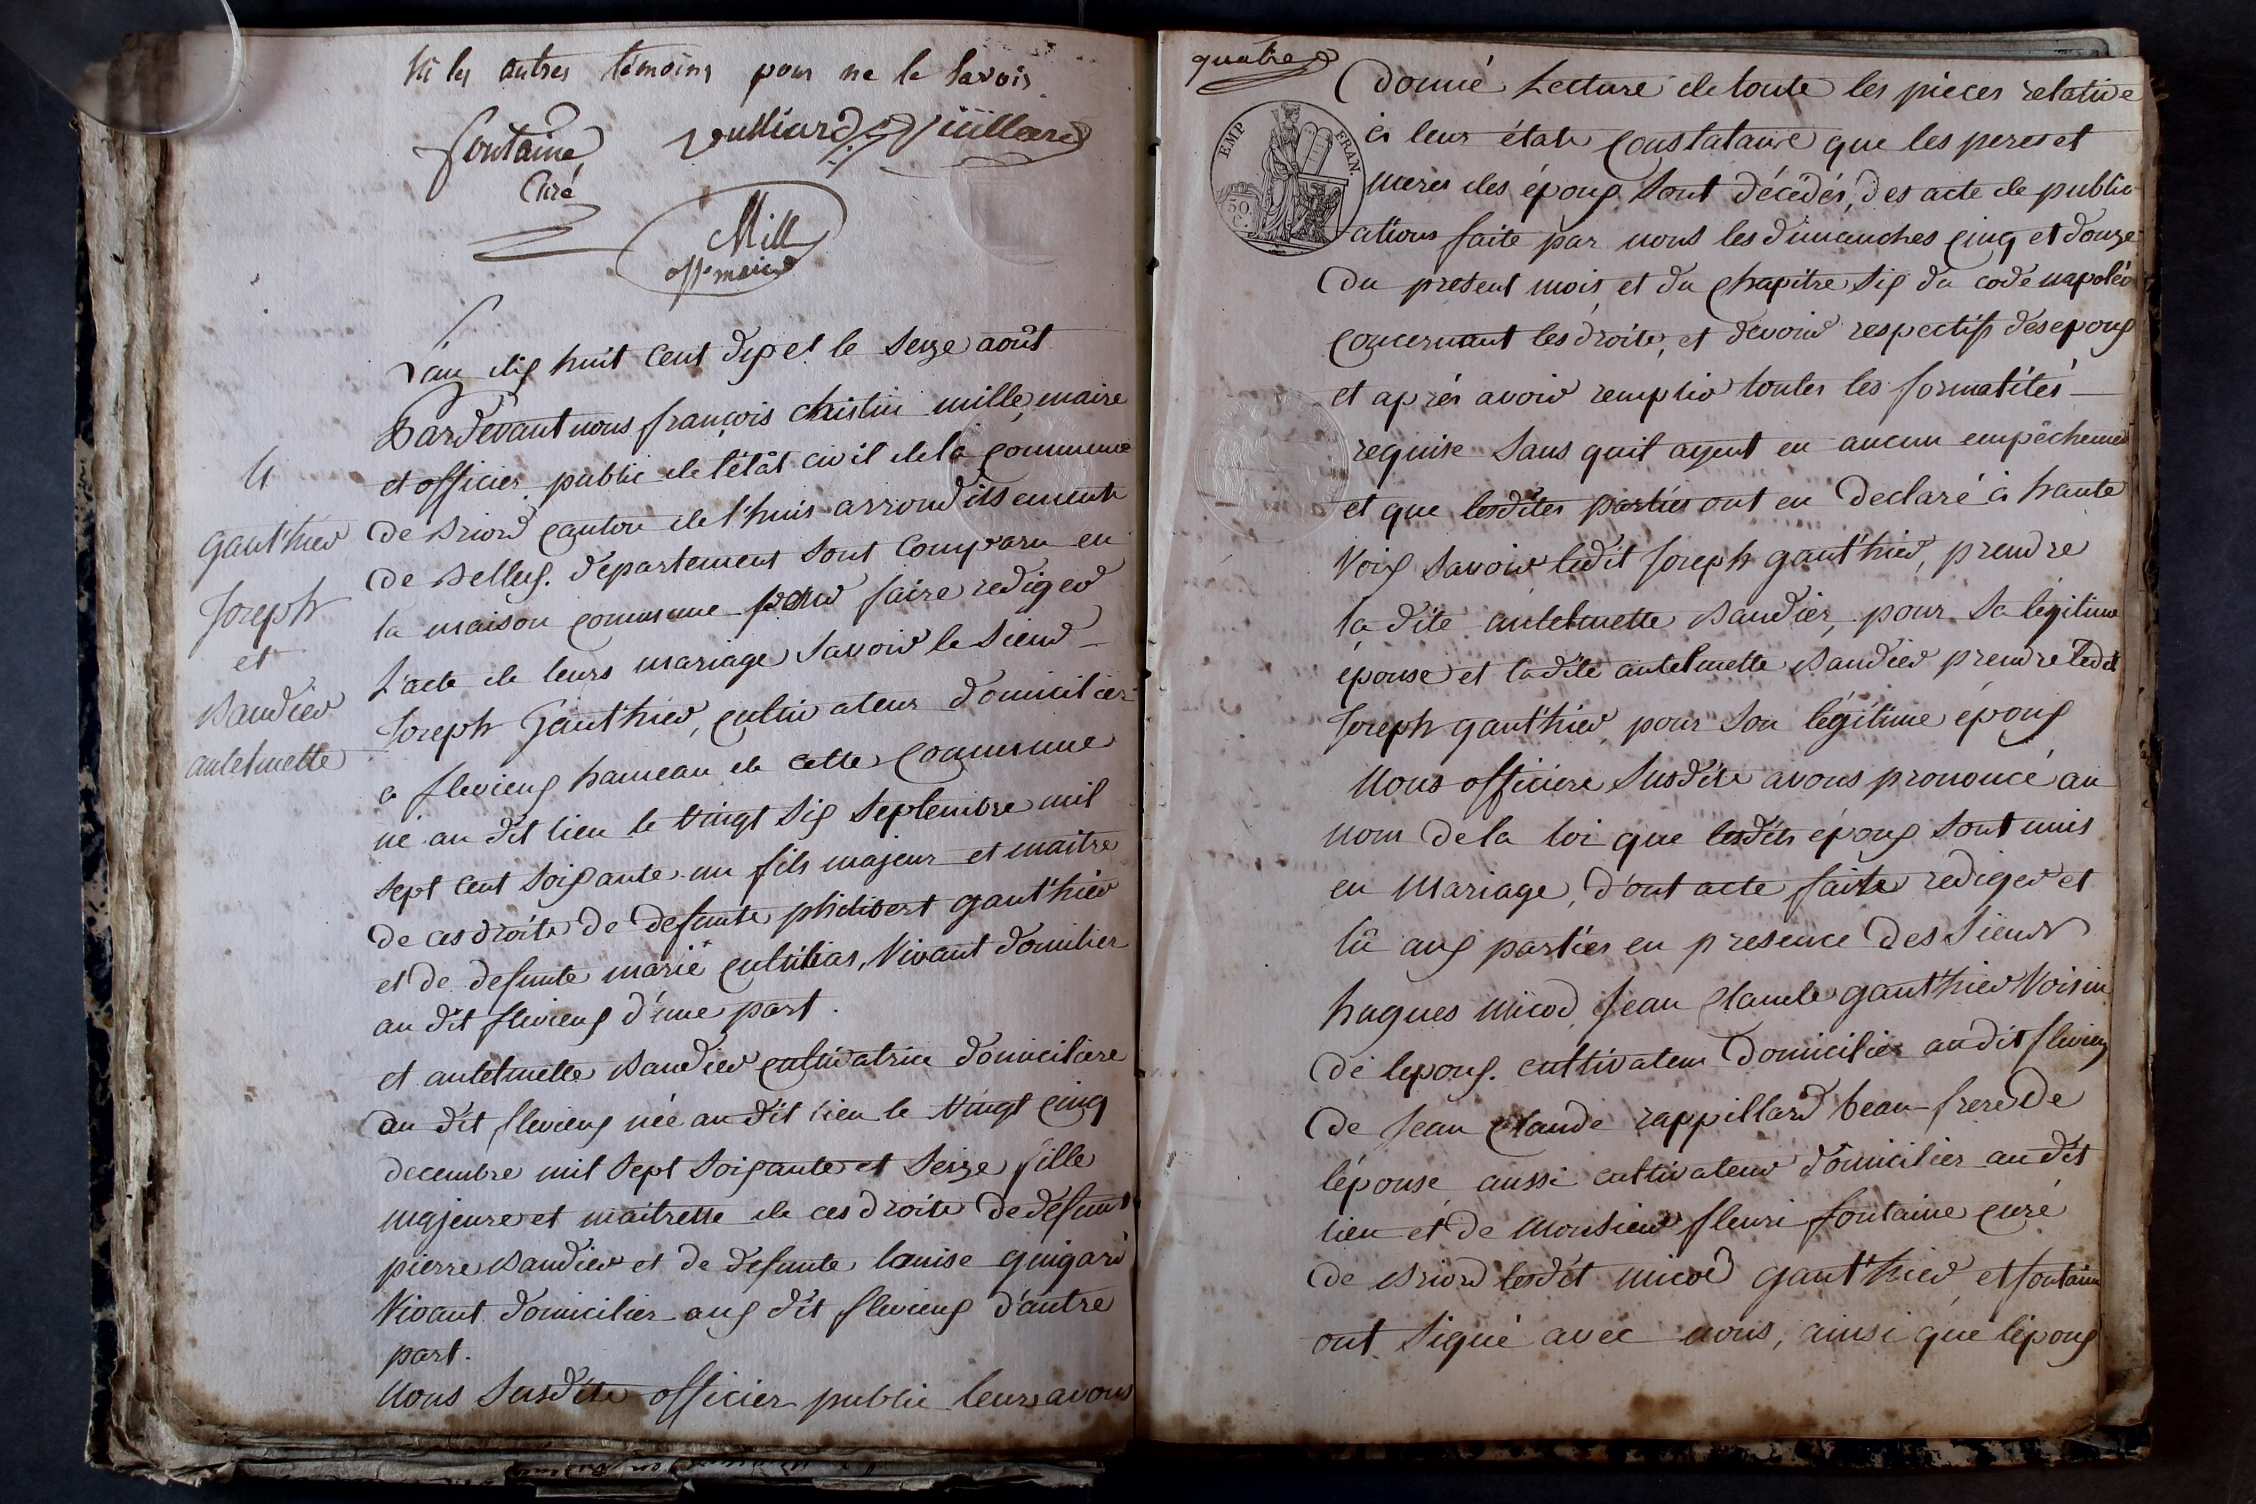 ni les autres témoins pour ne le savoir
fontaine
Curé
vulliard
Mill
off. maire
4
gauthier
Joseph
et
Baudier
antelmette
L'an dix huit cent dix et le seize août
Pardevant nous françois christin mille, maire
et officier public de l'état civil de la commune
de Briord canton de l'huis arrondissement
de Belley. département sont comparu en
la maison commune pour faire rediger
L'acte de leurs mariage savoir le sieur
Joseph Gauthier, cultivateur domicilier
a flevieux hameau de cette commune
né au dit lieu le vingt six septembre mil
sept cent soixante un fils majeur et maitre
de ces droite de defunte philibert gauthier
et de defunte marie vivant domilier
au dit flevieux d'une part.
et antelmette Baudier cultivatrice domiciliere
au dit flevieux née au dit lieu le vingt cinq
decembre mil sept soixante et seize fille
majeure et maitresse de ces droite de defunt
pierre Baudier et de defunte louise guigard
vivant domicilier aux dit flevieux d'autre
part.
Nous susdite officier public leurs avons
quatre
EMP FRAN.
50 C.
donné Lecture de toute les pièces relative
à leur état constatant que les peres et
meres des époux sont décédés, des acte de public
ations faite par nous les dimanches cinq et douze
du present mois et du chapitre six du code napoléon
concernant les droite, et devoir respectifs des epoux
et après avoir remplir toutes les formatités
requise sans quil ayent eu aucun empêchement
et que lesdites parties ont eu declaré à haute
voix savoir ledit Joseph gauthier, prendre
la dite antelmette Baudier, pour sa légitime
épouse et ladite antelmette Baudier prendre ledit
Joseph gauthier pour son légitime époux
Nous officiere susdite avons prononcé au
nom de la loi que lesdits époux sont unis
en mariage, d'ont acte faite rediger et
lû aux parties en presence des sieur
hugues micod, jean claude gauthier voisin
de lepoux. cultivateur domicilier audit flevieux
de jean claude rappillard beau-frere de
lépouse aussi cultivateur domicilier au dit
lieu et de monsieur fleuri fontaine curé
de Briord lesdit micod gauthier et fontaine
ont signé avec nous, ainsi que l'époux